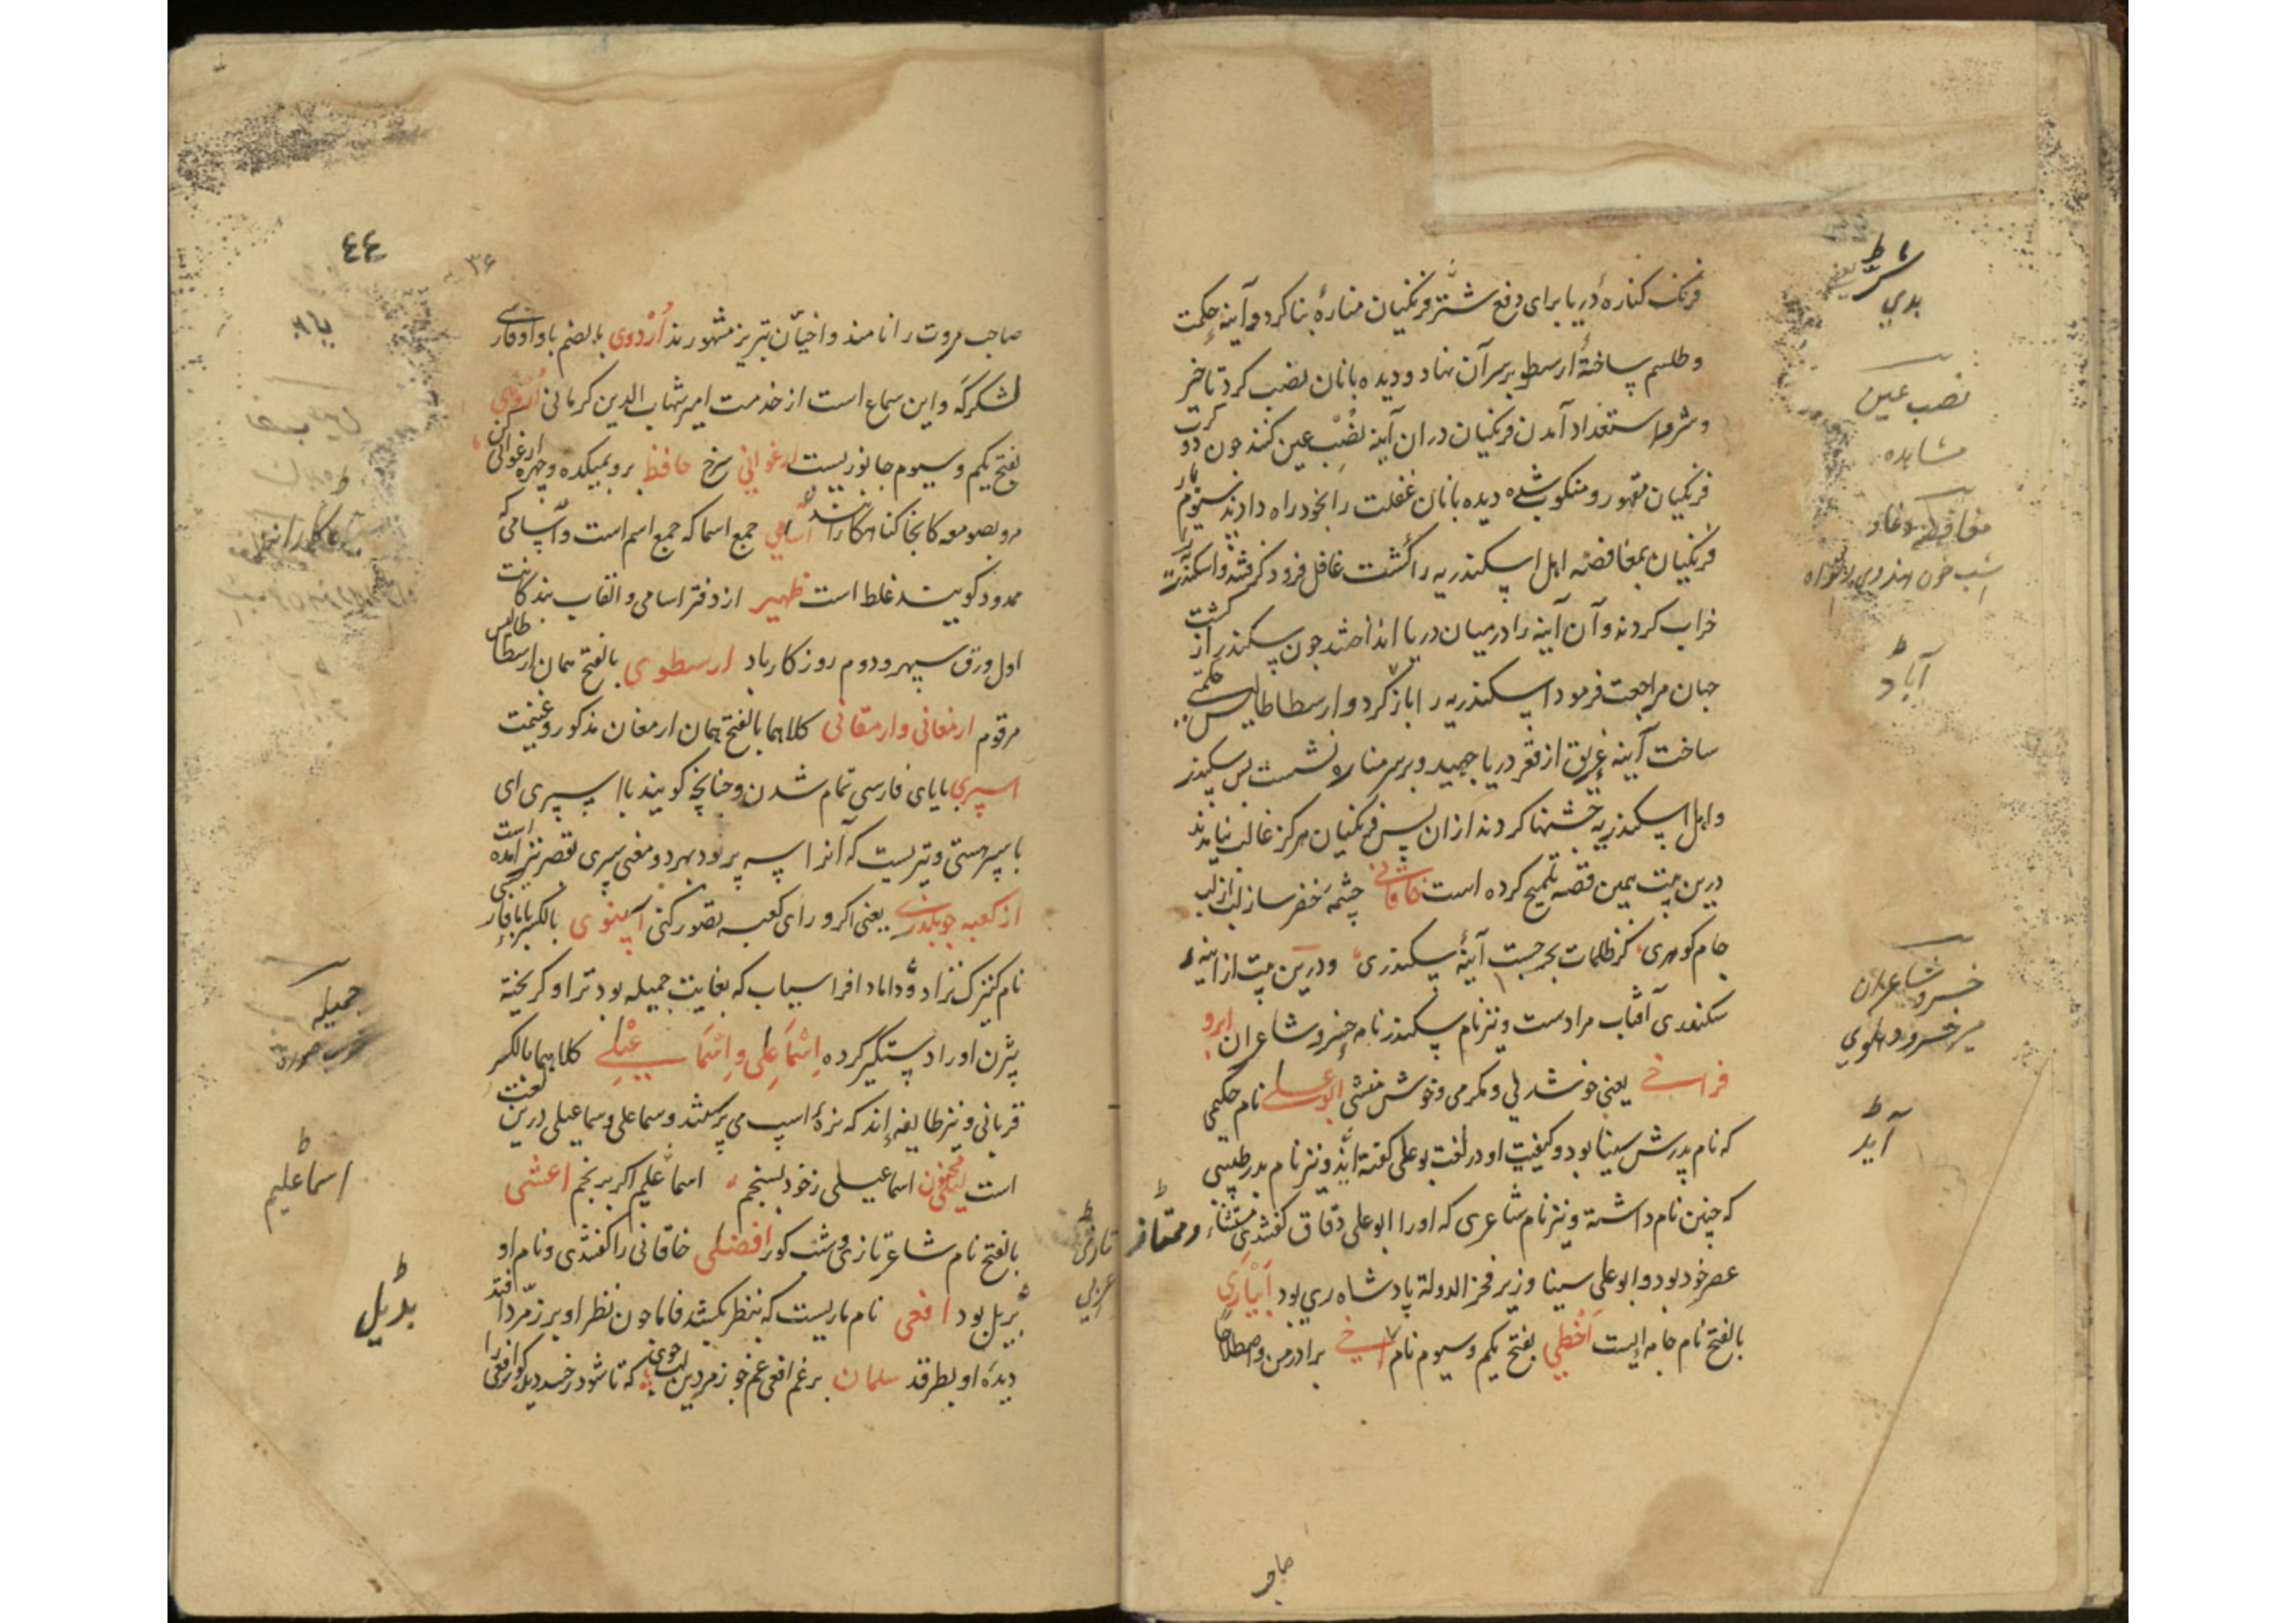 فرنک کنارهٔ دریا برای دفع شر فرنکیان منارهٔ بنا کرد و آینه حکمت
و طلسم ساختهٔ ارسطو بر سر آن نهاد و دیده بانان نصب کرد تا خیر
و شر و استعداد آمدن فرنکیان در آن آینه نصب عین کنند چون دو کرت
فرنکیان مقهور و منکوب شده دیده بانان غفلت را بخود راه دادند سیوم بار
فرنکیان بمغافصه اهل اسکندریه را کشت غافل فرود کرفتند و اسکندریه را
خراب کردند و آن آینه را در میان دریا انداختند چون سکندر از کشت
جهان مراجعت فرمود اسکندریه را باز کرد و ارسطاطالیس حکمتی
ساخت آینه غریق از قعر دریا جهید و بر سر مناره نشست پس سکندر
و اهل اسکندریه جشنها کردند از ان پس فرنکیان هرکز غالب نیامدند
درین بیت همین قصه تلمیح کرده است خاقانی چشمهٔ خضر ساز لب از لب
جام کوهری کز ظلمات بحر جست آینهٔ سکندری و درین بیت از آینه
سکندری آفتاب مرادست و نیز نام سکندر نام خسرو شاعران ابرو
فراخی یعنی خوشدلی و مکرمی و خوش منشی ابوعلی نام حکیمی
که نام پدرش سینا بود و کیفیت او در لغت بوعلی کفته آید و نیز نام پدر طبیبی
که چنین نام داشته و نیز نام شاعری که او را ابو علی دقاق کفتندی مستثناء و ممتاز
عصر خود بود و ابو علی سینا وزیر فخر الدولة پادشاه ری بود ابیاری
بالفتح نام جامه ایست اخطی بفتح یکم و سیوم نام اخی برادر من و اصطلاحا
صاحب
شرط
بدی
نصب عین
مشاهده
آباد
خسرو شاعران
میر خسرو دهلوی
آید
٤٤
۳۶
صاحب مروت را نامند و اخیان تبریز مشهورند اردوی بالضم با واو فارسی
لشکرکه و این سماع است از خدمت امیر شهاب الدین کرمانی
بفتح یکم و سیوم جانوریست ارغوانی سرخ حافظ برو بمیکده و چهره ارغوانی کن
مرو بصومعه کانجا کناهکارانند اسامی جمع اسما که جمع اسم است و آسامی که
ممدود کویند غلط است ظهیر از دفتر اسامی و القاب بندکانت
اول ورق سپهر و دوم روزکار باد ارسطوی بالفتح همان ارسطاطالیس
مرقوم ارمغانی و ارمقانی کلاهما بالفتح همان ارمغان مذکور و غنیمت
اسپری بایای فارسی تمام شدن و چنانچه کویند با اسپری ای
با سپر هستی و تیریست که آنرا سه پر بود بهر دو معنی سپری بقصر نیز آمده است
از کعبه چو بگذری یعنی اکر ورای کعبه تصور کنی اسپنوی بالکسر
نام کنیزک نزاد و داماد افراسیاب که بغایت جمیله بود تژاو کریخته
بیژن او را دستکیر کرده اسماعلی و اسماعیلی کلاهما بالکسر
قربانی و نیز طایفه اند که نرهٔ اسپ می پرستند و سماعلی و سماعیلی درین لغت
است اسماعیلی ز خود بسنجم اسماعلیم اکر برنجم اعشی
بالفتح نام شاعر تازی و شب کور افضلی خاقانی را کفتندی و نام او
بدیل بود افعی نام ماریست که بنظر بکشد فاما چون نظر او بر زمرد افتد
دیدهٔ او بطرقد سلمان برغم افعی غم خو زمردین لب جوی که تا شود ز حسد دیده کور افعی را
جمیله
خوب صورت
اسماعلیم
بدیل
تازی
عربی